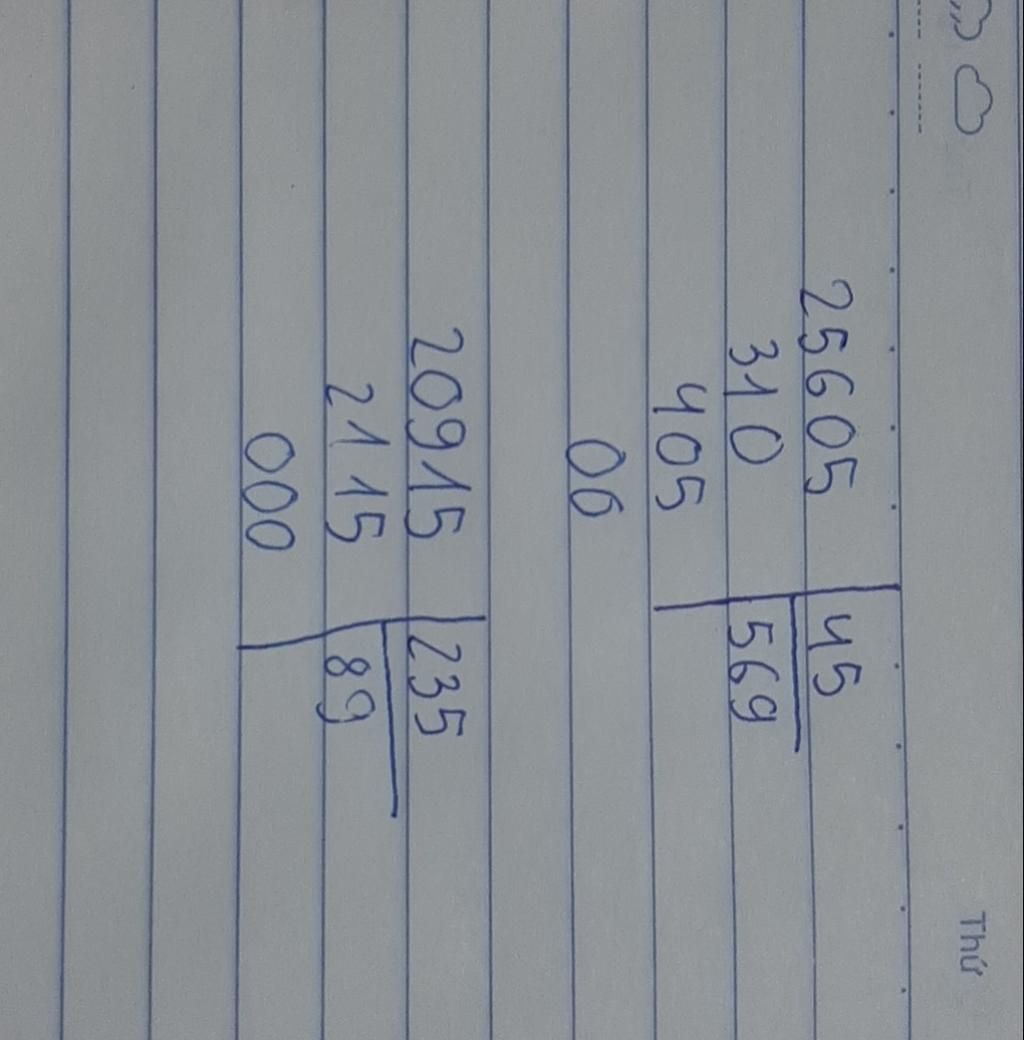 Thứ
25605 45
310 569
405
00
20915 235
2115 89
000